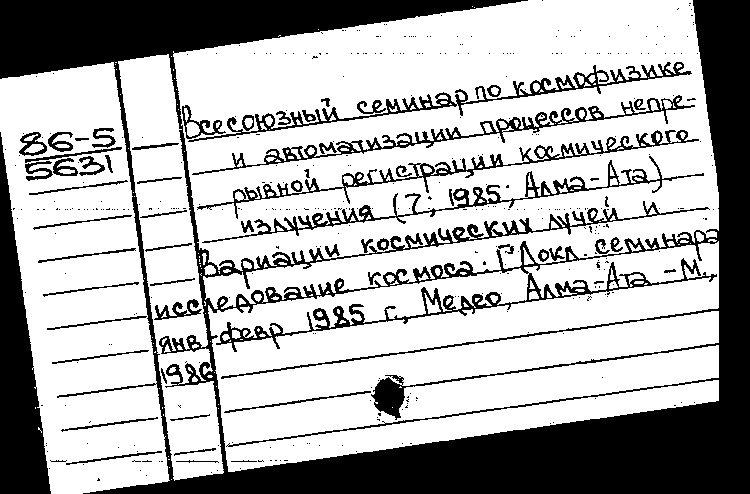 86-5
5631
Всесоюзный семинар по космофизике
и автоматизации процессов непре-
рывной регистрации космического
излучения (7; 1985; Алма-Ата)
Вариации космических лучей и
исследование космоса: [Докл. семинара
янв.-февр 1985 г., Медео, Алма-Ата -М.,
1986